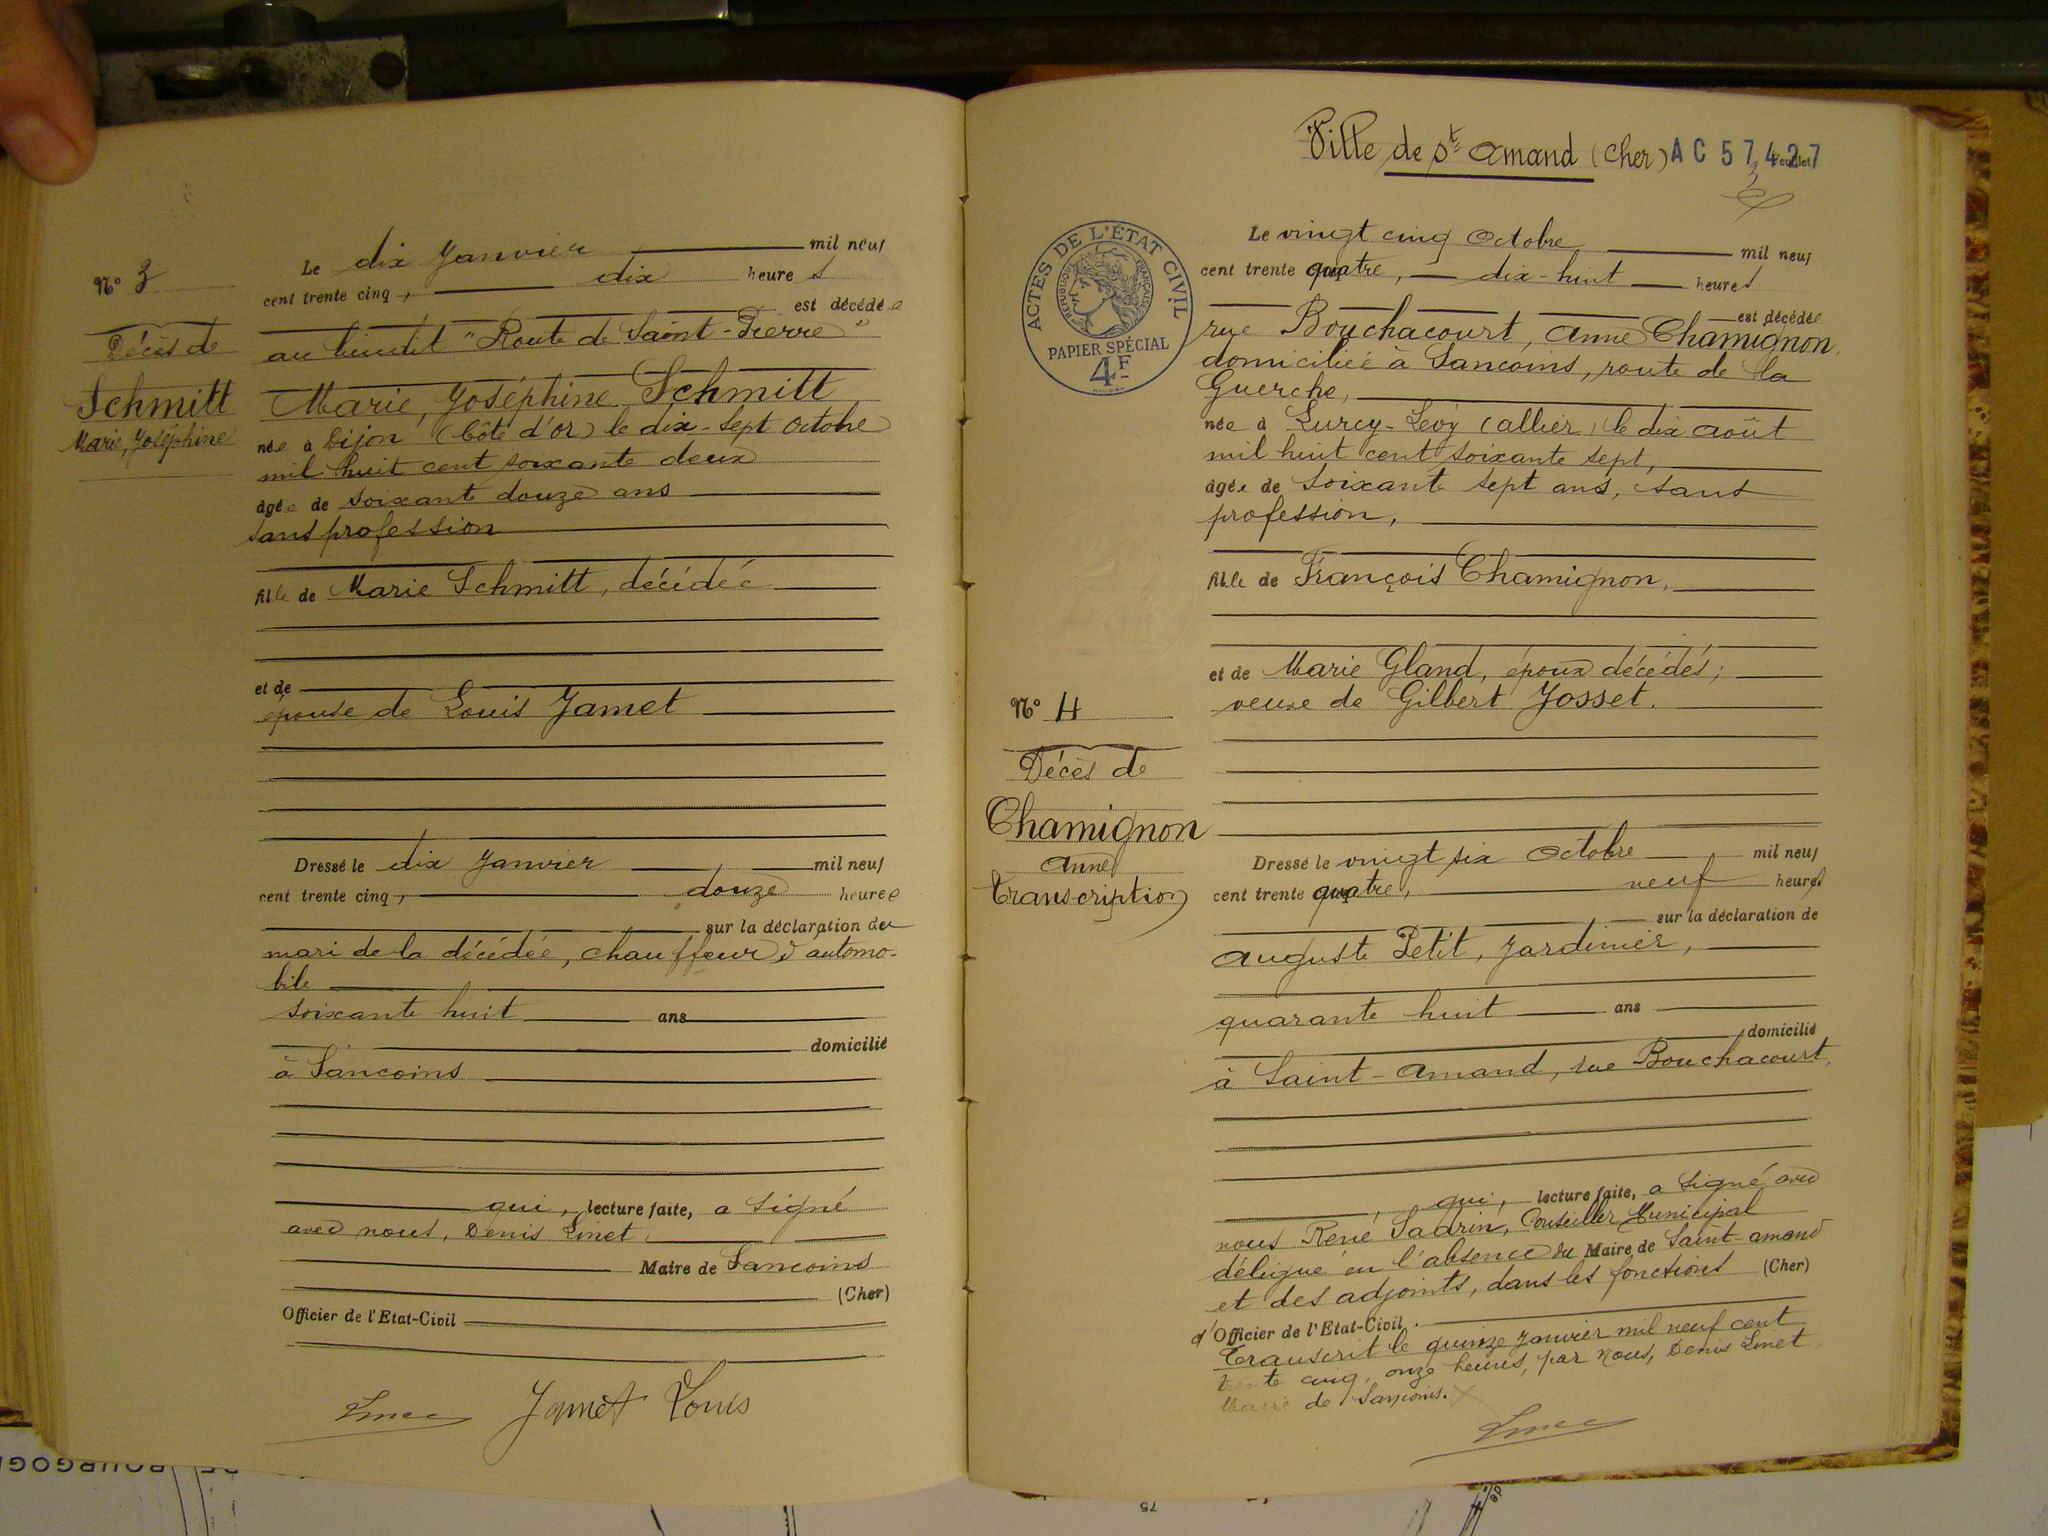 N° 3
Décès de
Schmitt
Marie, Joséphine
Le dix Janvier mil neuf
cent trente cinq, dix heures
est décédée
au lieudit "Route de Saint-Pierre"
Marie, Joséphine Schmitt
née à Dijon (Côte d'or) le dix-sept Octobre
mil huit cent soixante deux
âgée de soixante douze ans
sans profession
fille de Marie Schmitt, décédée
et de
épouse de Louis Jamet
Dressé le dix Janvier mil neuf
cent trente cinq, douze heures
sur la déclaration du
mari de la décédée, chauffeur d'automo-
bile
soixante huit ans
domicilié
à Sancoins
qui, lecture faite, a signé
avec nous, Denis Linet
Maire de Sancoins
(Cher)
Officier de l'Etat-Civil
Jamet Louis
Ville de St Amand (Cher) AC 57427
Feuillet
3
ACTES DE L'ÉTAT CIVIL
RÉPUBLIQUE FRANÇAISE
PAPIER SPÉCIAL
4F
Le vingt cinq Octobre mil neuf
cent trente quatre, dix-huit heures
est décédée
rue Bouchacourt, Anne Chamignon,
domiciliée à Sancoins, route de la
Guerche,
née à Lurcy-Levy (allier) le dix août
mil huit cent soixante sept,
âgée de soixante sept ans, sans
profession,
fille de François Chamignon,
et de Marie Gland, époux décédés;
veuve de Gilbert Josset.
N° 4
Décès de
Chamignon
Anne
Transcription
Dressé le vingt six Octobre mil neuf
cent trente quatre, neuf heures
sur la déclaration de
Auguste Petit, Jardinier,
quarante huit ans
domicilié
à Saint-Amand, rue Bouchacourt,
qui, lecture faite, a signé avec
nous René Sadrin, Conseiller Municipal
délégué en l'absence du Maire de Saint-amand
et des adjoints, dans les fonctions (Cher)
d'Officier de l'Etat-Civil.
Transcrit le quinze Janvier mil neuf cent
trente cinq, onze heures, par nous, Denis Linet
Maire de Sancoins.
75